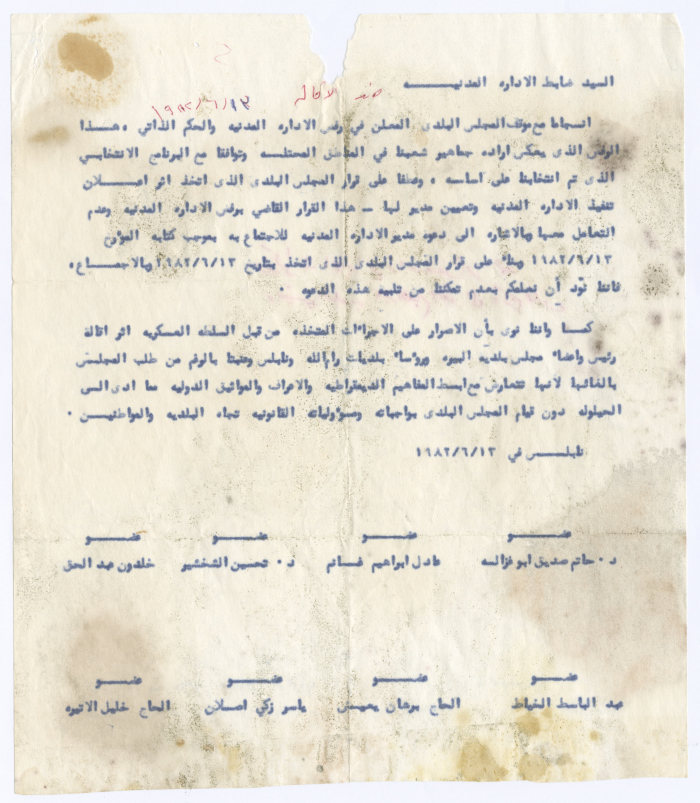 السيد ضابط الاداره المدنيـــه
ضد الاقالة ١٩٨٢/٦/١٣
انسجاما مع موقف المجلس البلدى المعلن في رفض الاداره المدنيه والحكم الذاتي ، هـــذا
الرفض الذى يعكس اراده جماهير شعبنا في المناطق المحتلــه وتوافقا مع البرنامج الانتخابي
الذى تم انتخابنا على اساسه ، وعطفا على قرار المجلس البلدى الذى اتخذ اثر اعــلان
تنفيذ الاداره المدنيه وتعيين مدير لها ــ هذا القرار القاضي برفض الاداره المدنيه وعدم
التعامل معها وبالاشاره الى دعوه مدير الاداره المدنيه للاجتماع به بموجب كتابه المؤرخ
١٩٨٢/٦/١٣ وبناء على قرار المجلس البلدى الذى اتخذ بتاريخ ١٩٨٢/٦/١٣ وبالاجمــاع،
فاننا نود أن نعلمكم بعدم تمكننا من تلبيه هذه الدعوه .
كمــا واننا نرى بأن الاصرار على الاجراءات المتخذه من قبل السلطه العسكريه اثر اقالة
رئيس واعضاء مجلس بلديه البيره ورؤساء بلديات رام الله ونابلس وعنبتا بالرغم من طلب المجلس
بالغائها لانها تتعارض مع ابسط المفاهيم الديمقراطيه والاعراف والمواثيق الدوليه مما ادى الــى
الحيلوله دون قيام المجلس البلدى بواجباته ومسؤولياته القانونيه تجاه البلديه والمواطنيــن .
نابلــس في ١٩٨٢/٦/١٣
عضــو عضــو عضــو عضــو
د . حاتم صديق ابو غزاله عادل ابراهيم غــانم د . تحسين الشخشير خلدون عبد الحق
عضــو عضــو عضــو عضــو
عبد الباسط الخياط الحاج برهان يعيــش ياسر زكي اصــلان الحاج خليل الاتيره